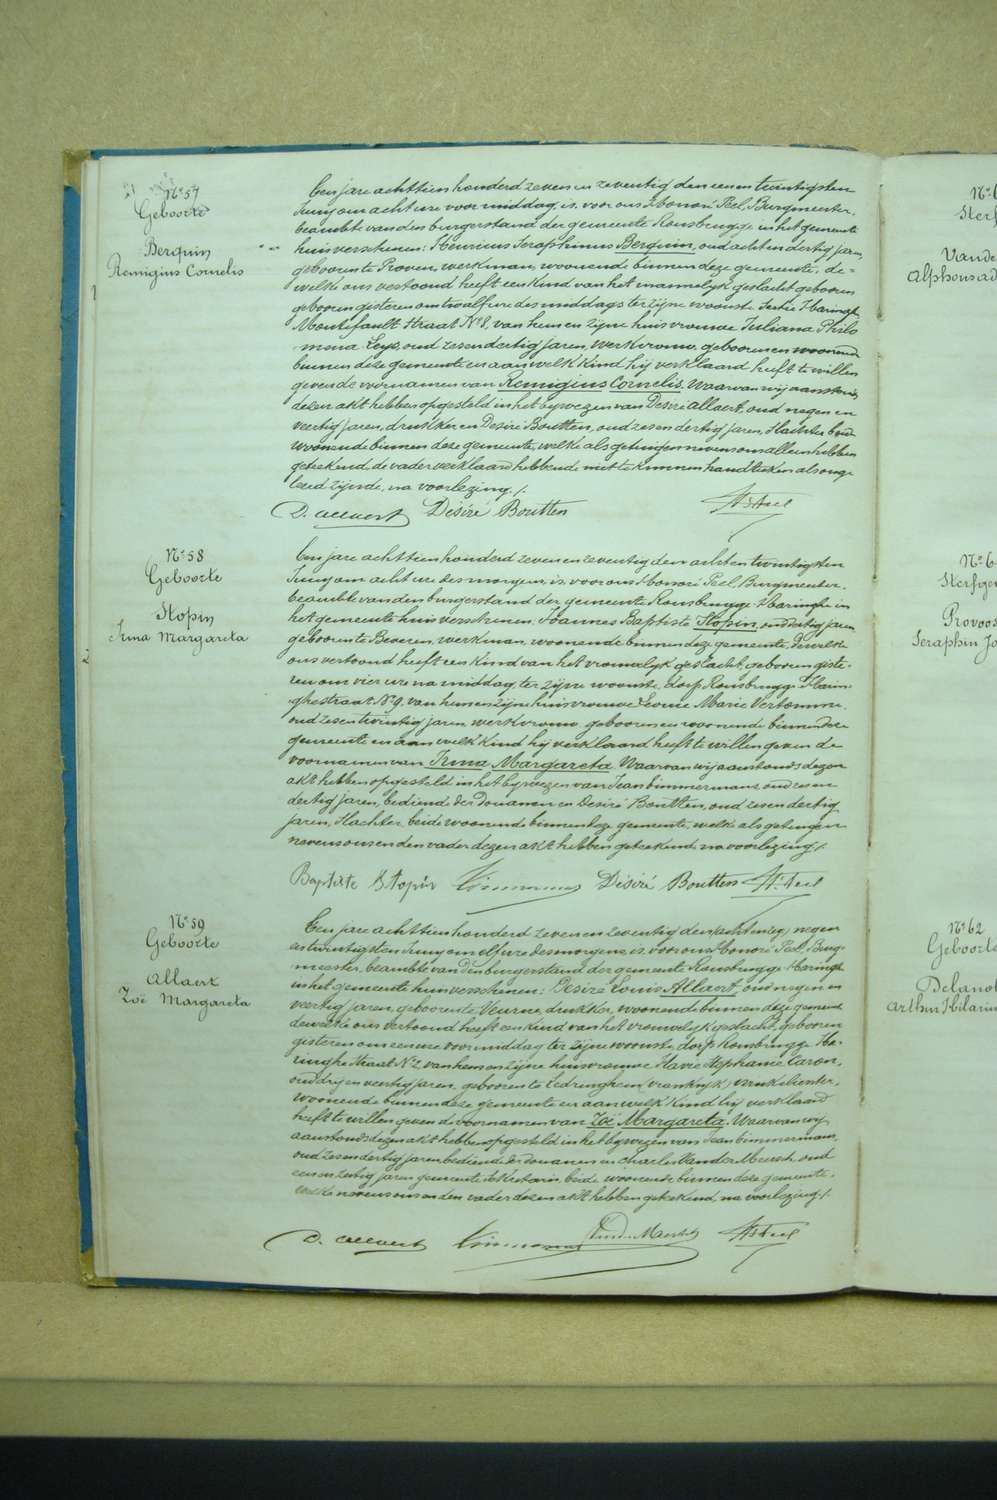 N° 57
Geboorte
Berquin
Remigius Cornelis
Een jare achttien honderd zeven en zeventig den een en twintigsten
Juny om acht ure voormiddag, is, voor ons Honoré Peel, Burgmeester,
beambte van den burgerstand der gemeente Rousbrugge in het gemeente
huis verschenen: Henricus Seraphinus Berquin, oud acht en dertig jaren,
geboren te Proven, werkman, woonende binnen deze gemeente, de=
welke ons vertoond heeft een kind van het mannelijk geslacht geboren
geboren gisteren om twaalf ure des middags te zijne woonste
straat N° 8, van hem en zijne huisvrouwe Juliana Philo
mena Leys, oud zes en dertig jaren, werkvrouw, geboren en woonende
binnen deze gemeente en aan welk kind hij verklaard heeft te willen
geven de voornamen van Remigius Cornelis. Waarvan wij aanstonds
dezen akt hebben opgesteld in het bywezen van Desiré Allaert, oud negen en
veertig jaren, drukker en Desiré Boutten, oud zes en dertig jaren, Slachter beide
woonende binnen deze gemeente, welke als getuigen nevens ons alleen hebben
geteekend, de vader verklaard hebbende niet te kunnen handteeken als onge
leerd zijnde, na voorlezing ./.
D. Allaert Désiré Boutten H. Peel
N° 58
Geboorte
Stopin
Irma Margareta
Een jare achttien honderd zeven en zeventig den acht en twintigsten
Juny om acht ure des morgens, is, voor ons Honoré Peel Burgmeester,
beambte van den burgerstand der gemeente Rousbrugge-Haringhe in
het gemeente huis verschenen: Joannes Baptiste Stopin, oud dertig jaren
geboren te Beveren, werkman, woonende binnen deze gemeente, dewelke
ons vertoond heeft een kind van het vrouwelijk geslacht, geboren giste
ren om vier ure na middag, te zijne woonste, dorp Rousbrugge Harin
ghestraat N° 9, van hem en zijne huisvrouwe Louise Marie
oud zes en twintig jaren, werkvrouw, geboren en woonende binnen deze
gemeente en aan welk kind hij verklaard heeft te willen geven de
voornamen van Irma Margareta. Waarvan wij aanstonds dezen
akt hebben opgesteld in het bijwezen van Jean Timmerman, oud zes en
dertig jaren, bediende der Douanen en Desiré Boutten, oud zes en dertig
jaren, Slachter, beide woonende binnen deze gemeente, welke als getuigen
nevens ons en den vader dezen akt hebben geteekend na voorlezing ./.
Baptiste Stopin Timmerman Désiré Boutten H. Peel
N° 59
Geboorte
Allaert
Zoë Margareta
Een jare achttien honderd zeven en zeventig den negen
en twintigsten Juny om elf ure des morgens, is, voor ons Honoré Peel, Burg
meester, beambte van den burgerstand der gemeente Rousbrugge Haringhe
in het gemeente huis verschenen: Desiré Louis Allaert, oud negen en
veertig jaren, geboren te Veurne, drukker, woonende binnen deze gemeente
dewelke ons vertoond heeft een kind van het vrouwelijk geslacht, geboren
gisteren om ure voormiddag te zijne woonste, dorp Rousbrugge Ha=
ringhe straat N° 2 van hem en zijne huisvrouwe Stephanie Caron,
oud drij en veertig jaren, geboren te Ledringhem, Vrankrijk, winkelierster,
woonende binnen deze gemeente en aan welk kind hij verklaard
heeft te willen geven de voornamen van Zoë Margareta. Waarvan wij
aanstonds dezen akt hebben opgesteld in het bijwezen van Jean Timmerman,
oud zes en dertig jaren bediende der douanen en Charles Vander Meersch, oud
jaren gemeente sekretaris, beide woonende binnen deze gemeente,
welke nevens ons en den vader dezen akt hebben geteekend, na voorlezing ./.
D. Allaert Timmerman H. Peel
Vande
Alphonsa
Provoos
Seraphin Jo
N° 62
Geboorte
Delanol
Arthur Hilarius